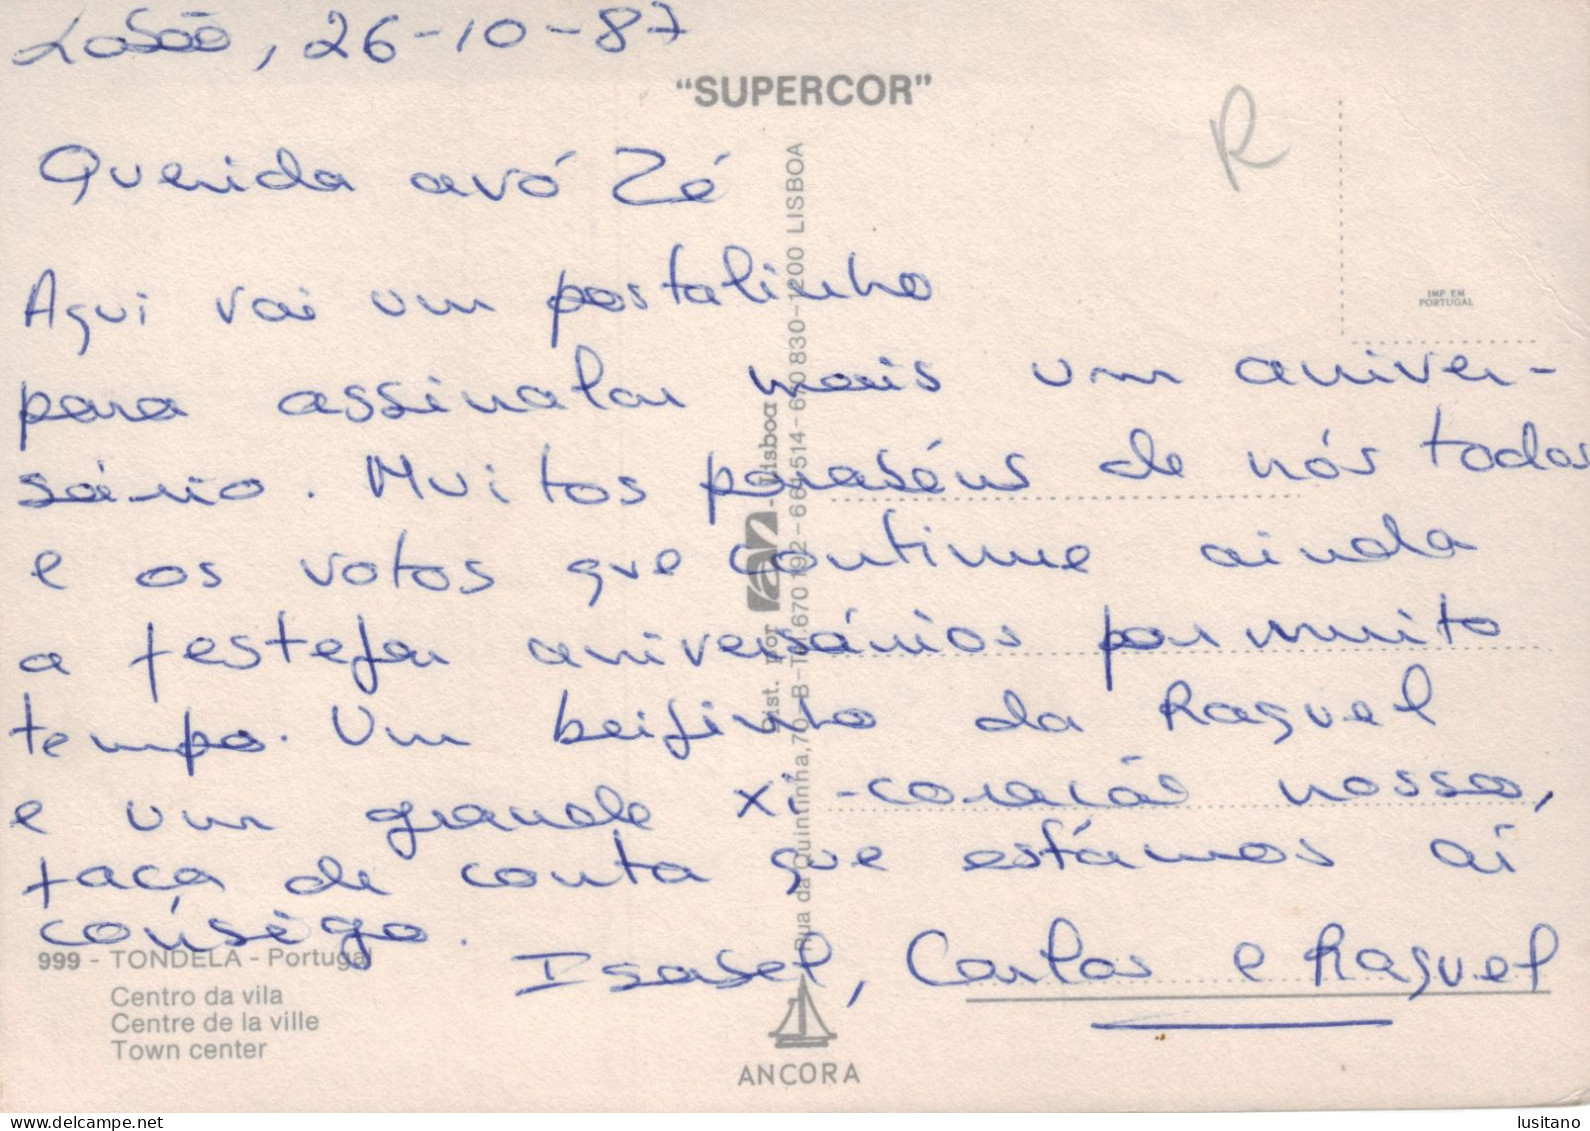 Lobão, 26-10-87
"SUPERCOR"
R
Querida avó Zé
Aqui vai um postalinho
para assinalar mais um aniver-
sário. Muitos parabéns de nós todos
e os votos que continue ainda
a festejar aniversários por muito
tempo. Um beijinho da Raquel
e um grande xi-coração nosso,
faça de conta que estámos aí
consigo.
Isabel, Carlos e Raquel
IMP. EM
PORTUGAL
Dist. por - Lisboa
Rua da Quintinha, 70-B-Tel. 670 192-661 514-670 830-1200 LISBOA
999 - TONDELA - Portugal
Centro da vila
Centre de la ville
Town center
ANCORA
delcampe.net
lusitano